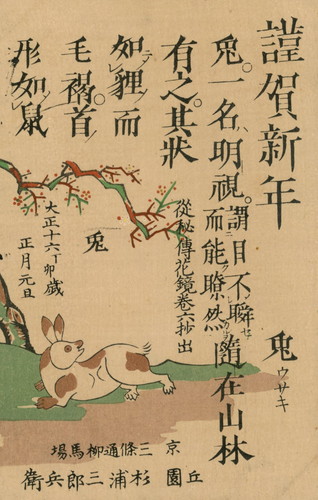 謹賀新年
兎 ウサキ
兎一名ハ明視。謂目不瞬セ
而能瞭然
隨在山林
有之。其狀
如貍而
毛褐。首
形如鼠
從秘傳花鏡卷六抄出
兎
大正十六丁卯歲
正月元旦
京三條通柳馬場
丘園杉浦三郎兵衛